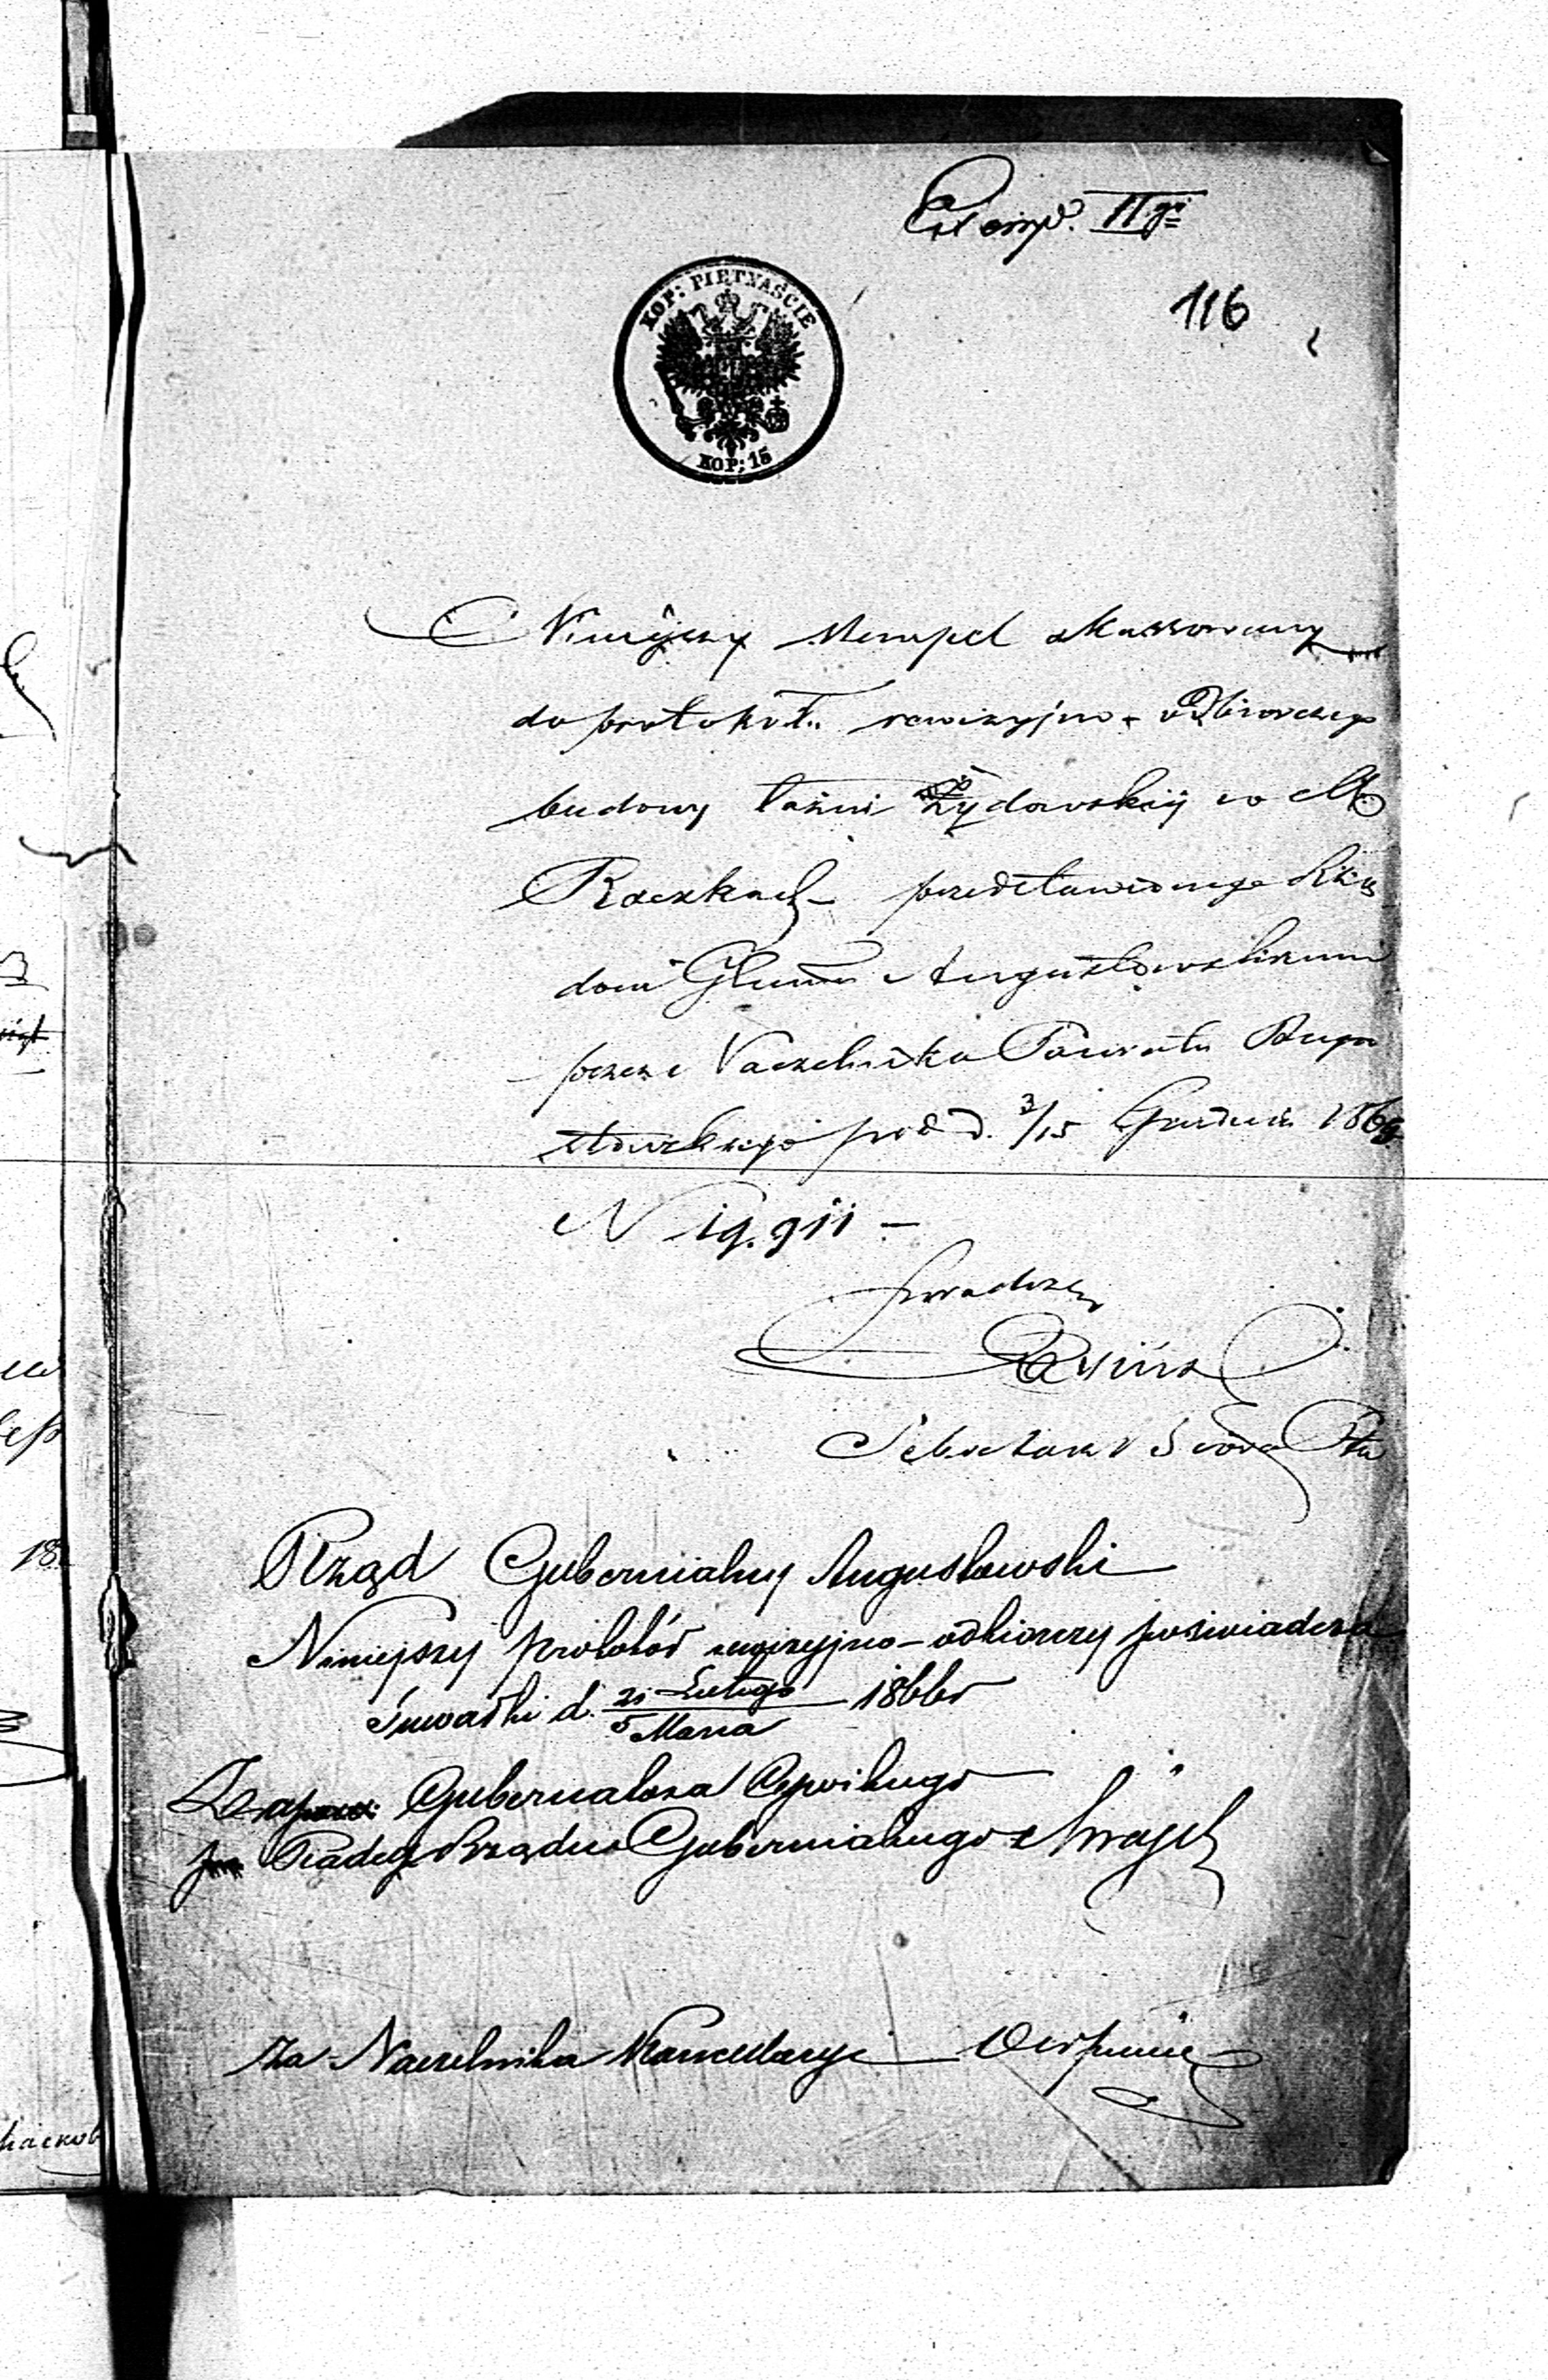 Exemp. II gi
116
KOP: PIĘTNAŚCIE
KOP: 15
Niniejszy stempel skassowany
do protokółu rewizyjno-odbiorczego
budowy łaźni Żydowskiej w M.
Raczkach przedstawionego Rzą
dowi Gubern. Augustowskiemu
przez Naczelnika Powiatu Augu
stowskiego pod d. 3/15 Grudnia 1865
N 19.911 –
Świadczę
Sekretarz Bióra Ptu
Rząd Gubernialny Augustowski
Niniejszy protokół rewizyjno-odbiorczy poświadcza
Suwałki d. 21 Lutego 1866 r
5 Marca
Gubernatora Cywilnego
Radcy Rządu Gubernialnego
Za Naczelnika Kancellaryi